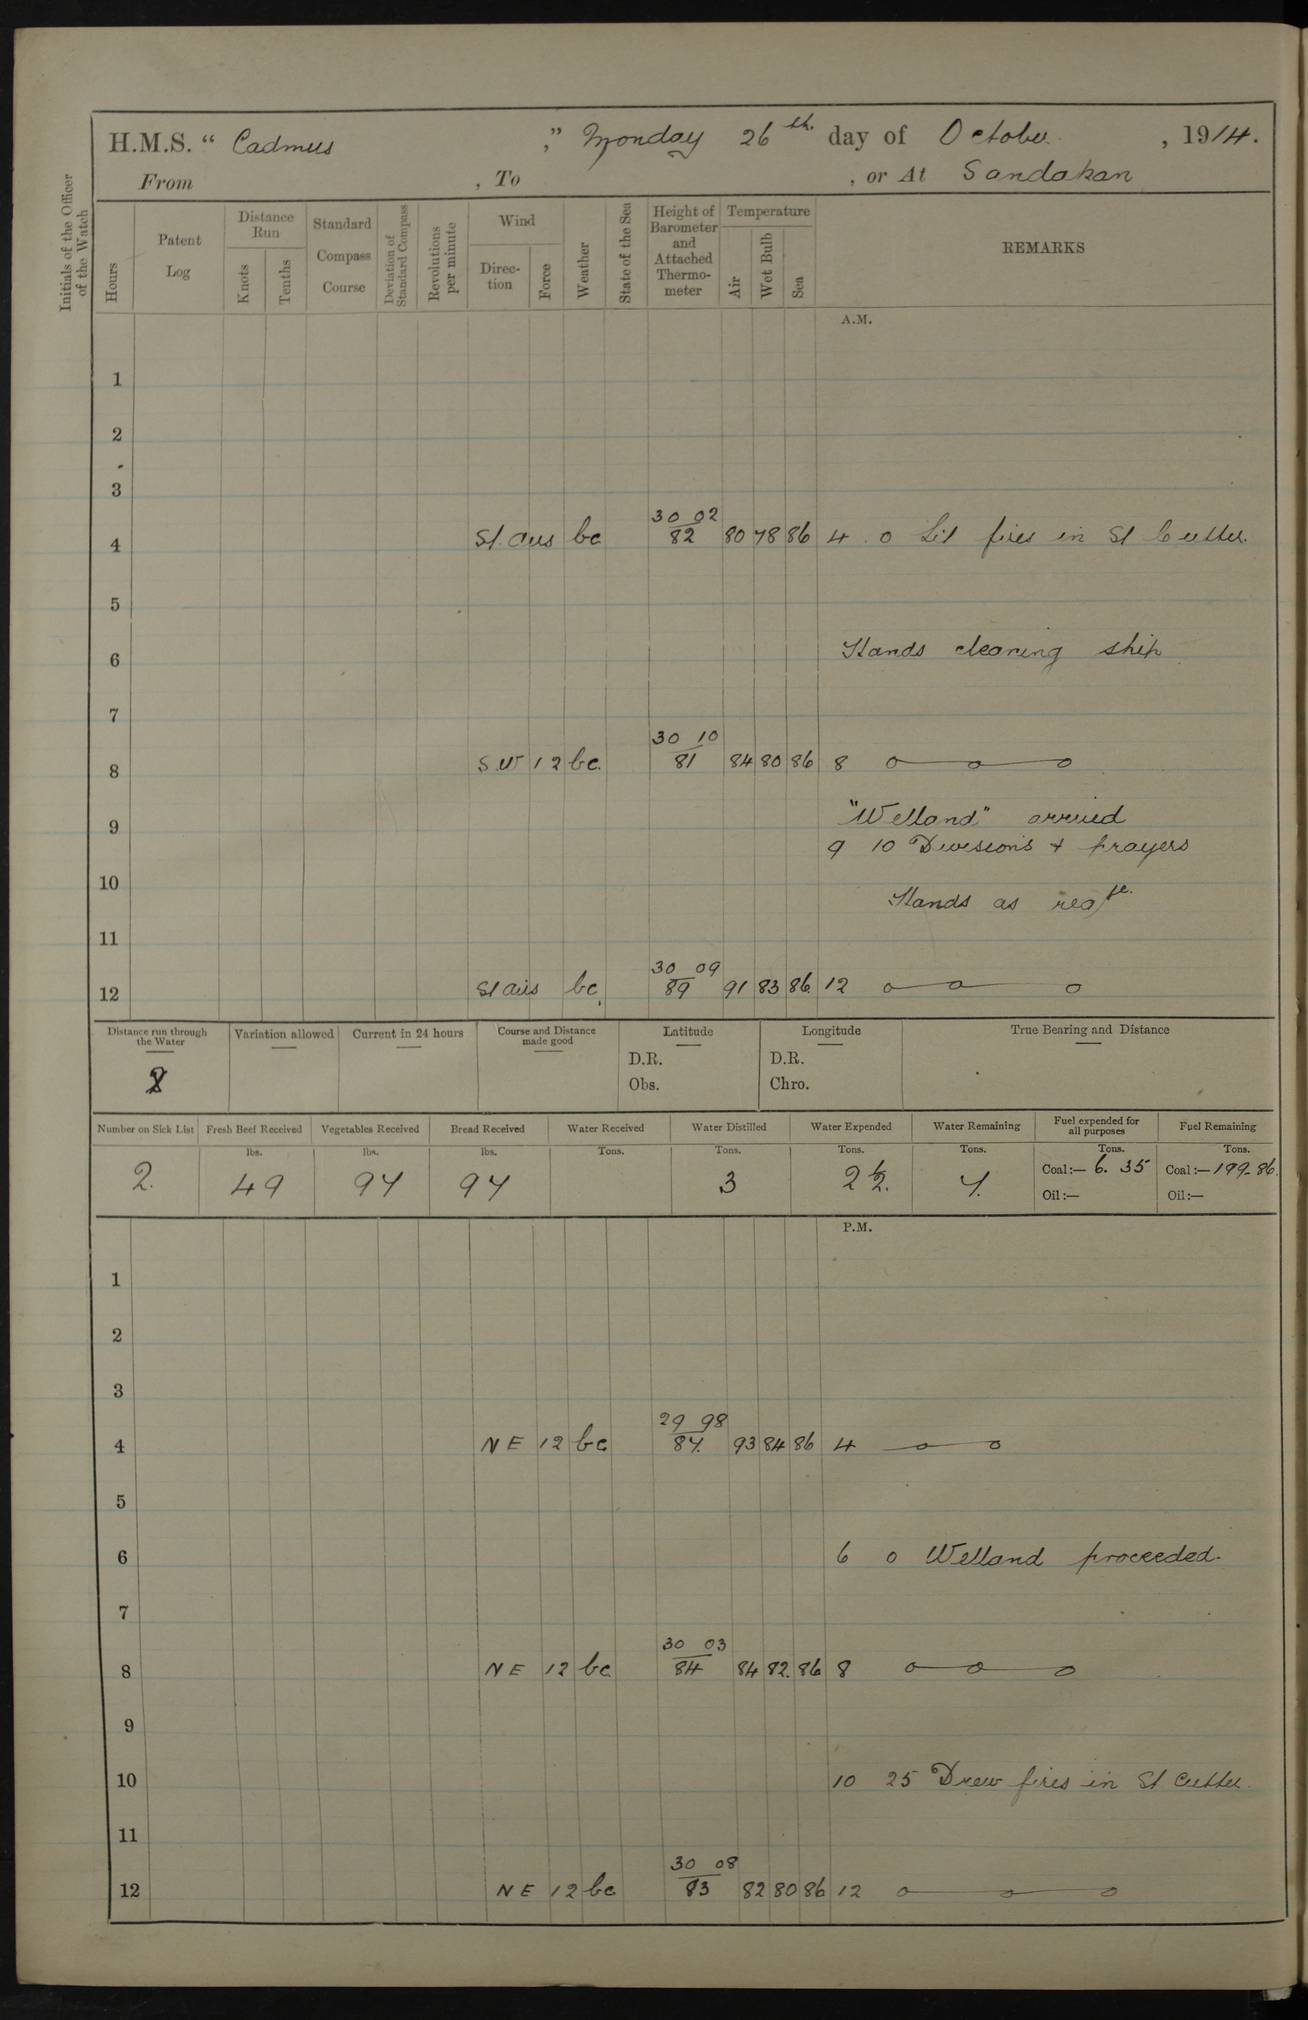 H.M.S. “ Cadmus ,” Monday 26th. day of October , 1914.
From , To , or At Sandakan
Initials of the Officer of the Watch
Hours
Patent Log
Distance Run
Knots
Tenths
Standard Compass Course
Deviation of Standard Compass
Revolutions per minute
Wind
Direc-tion
Force
Weather
State of the Sea
Height of Barometer and Attached Thermo-meter
Temperature
Air
Wet Bulb
Sea
REMARKS
A.M.
1
2
3
30 02
4 St. airs bc 82 80 78 86 4 0 Lit fires in St Cutter.
5
6 Hands cleaning ship
7
30 10
8 S.W 1 2 bc. 81 84 80 86 8
"Welland" arrived
9
9 10 Divisions + prayers
10
Hands as req
11
30 09
12 St airs bc 89 91 83 86 12
Distance run through the Water
Variation allowed
Current in 24 hours
Course and Distance made good
Latitude
Longitude
True Bearing and Distance
D.R. D.R.
Obs. Chro.
Number on Sick List Fresh Beef Received Vegetables Received Bread Received Water Received Water Distilled Water Expended Water Remaining Fuel expended for all purposes Fuel Remaining
lbs. lbs. lbs. Tons. Tons. Tons. Tons. Tons. Tons.
2. 49 97 97 3 2 ½. 7. Coal:— 6. 35 Coal:— 199.86.
Oil:— Oil:—
P.M.
1
2
3
29 98
4 N E 1 2 bc 87. 93 84 86 4
5
6 6 0 Welland proceeded.
7
30 03
8 N E 1 2 bc. 84 84 82. 86 8
9
10 10 25 Drew fires in St Cutter.
11
30 08
12 N E 1 2 bc 83 82 80 86 12